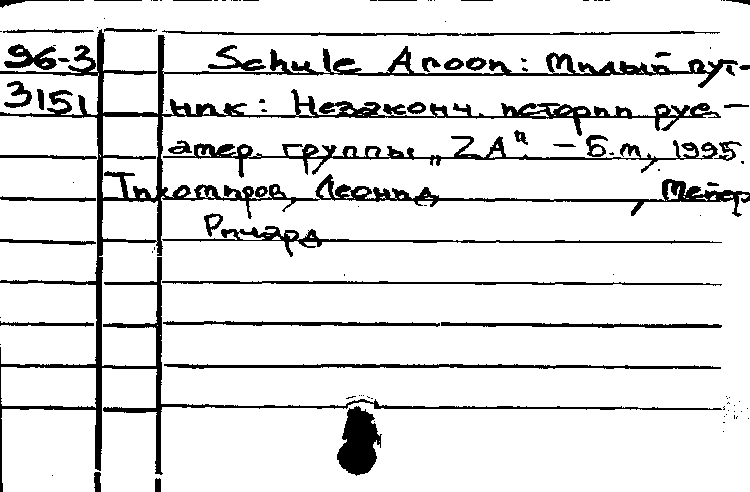 96-3 Schule Aroon: Милый пут-
3151 ник: Незаконч. истории рус.-
амер. группы „ZA". – Б.м., 1995.
Тихомиров, Леонид, Мейер
Ричард